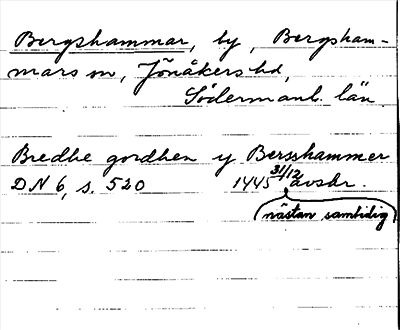 Bergshammar, by, Bergsham-
mars sn, Jönåkers hd,
Södermanl. län
Bredhe gordhen y Bersshammer
DN 6, s. 520 1445 31/12 avskr.
(nästan samtidig)